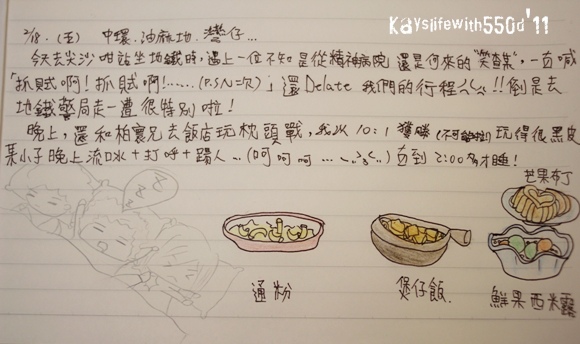 Kayslifewith550d '11
2/18. (五) 中環.油麻地.灣仔...
今天去尖沙咀站坐地鐵時,遇上一位不知是從精神病院還是何來的"笑查某",一直喊
「抓賊啊!抓賊啊!......(P.S.N=次)」還Delate我們的行程!!倒是去
地鐵警局走一遭很特別啦!
晚上,還和柏寰兄去飯店玩枕頭戰,我以10:1獲勝(不可能啦)玩得很黑皮
某小子晚上流口水+打呼+踢人..(呵呵呵...)直到2:00多才睡!
芒果布丁
通粉
煲仔飯.
鮮果西米露